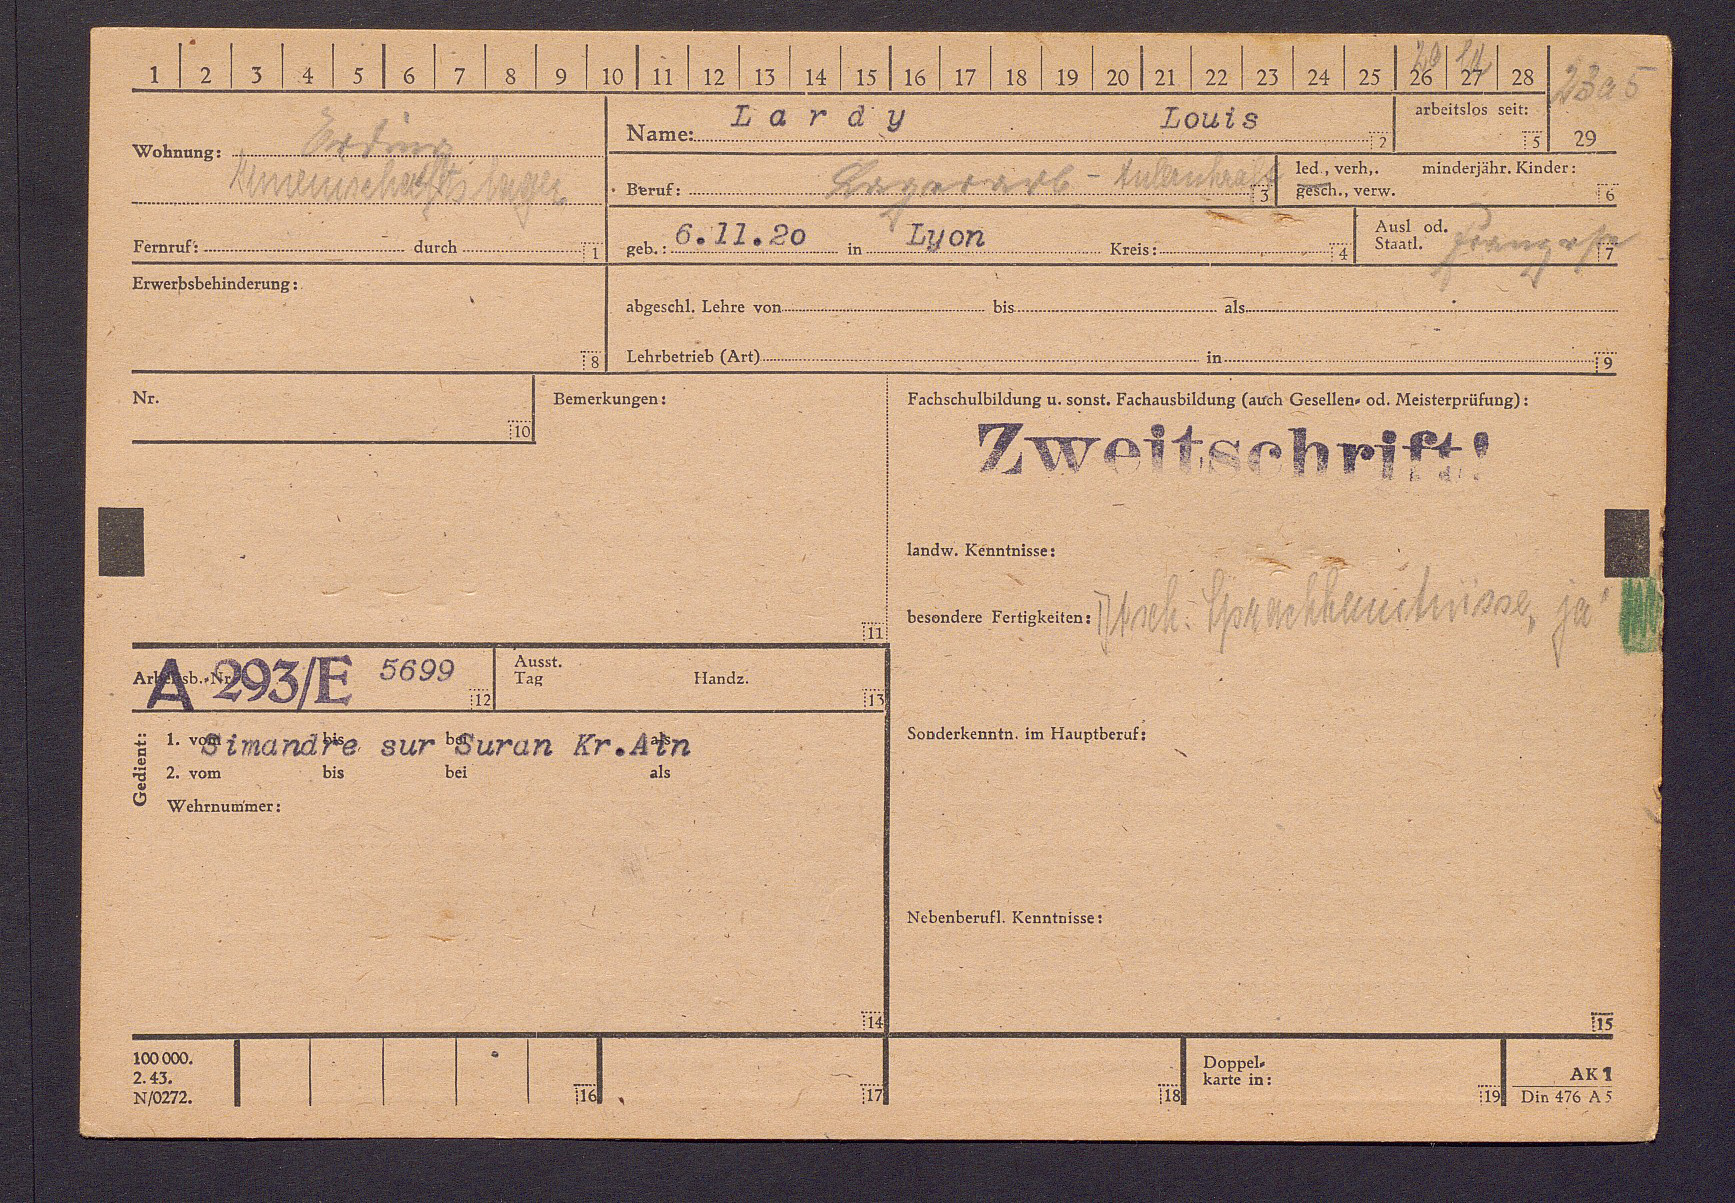 1 2 3 4 5 6 7 8 9 10 11 12 13 14 15 16 17 18 19 20 21 22 23 24 25 26 27 28
23a5
29
Wohnung: Erding
Fernruf: durch 1
Name: Lardy Louis 2
arbeitslos seit: 5
Beruf: Lagerarb - 3
led., verh,. minderjähr. Kinder:
gesch., verw. 6
geb.: 6.11.20 in Lyon Kreis: 4
Ausl od.
Staatl. Franzose 7
Erwerbsbehinderung:
8
abgeschl. Lehre von bis als
Lehrbetrieb (Art) in 9
Nr.
10
Bemerkungen:
11
Fachschulbildung u. sonst. Fachausbildung (auch Gesellen- od. Meisterprüfung):
Zweitschrift!
landw. Kenntnisse:
besondere Fertigkeiten: Dtsch. Sprachkenntnisse, ja
Sonderkenntn. im Hauptberuf:
Nebenberufl. Kenntnisse:
15
Arbeitsb.-Nr. A 293/E 5699 12
Ausst.
Tag Handz. 13
Gedient:
1. vom bis bei als
Simandre sur Suran Kr.Ain
2. vom bis bei als
Wehrnummer:
14
100 000.
2. 43.
N/0272.
16 17 18
Doppel-
karte in: 19
AK 1
Din 476 A 5